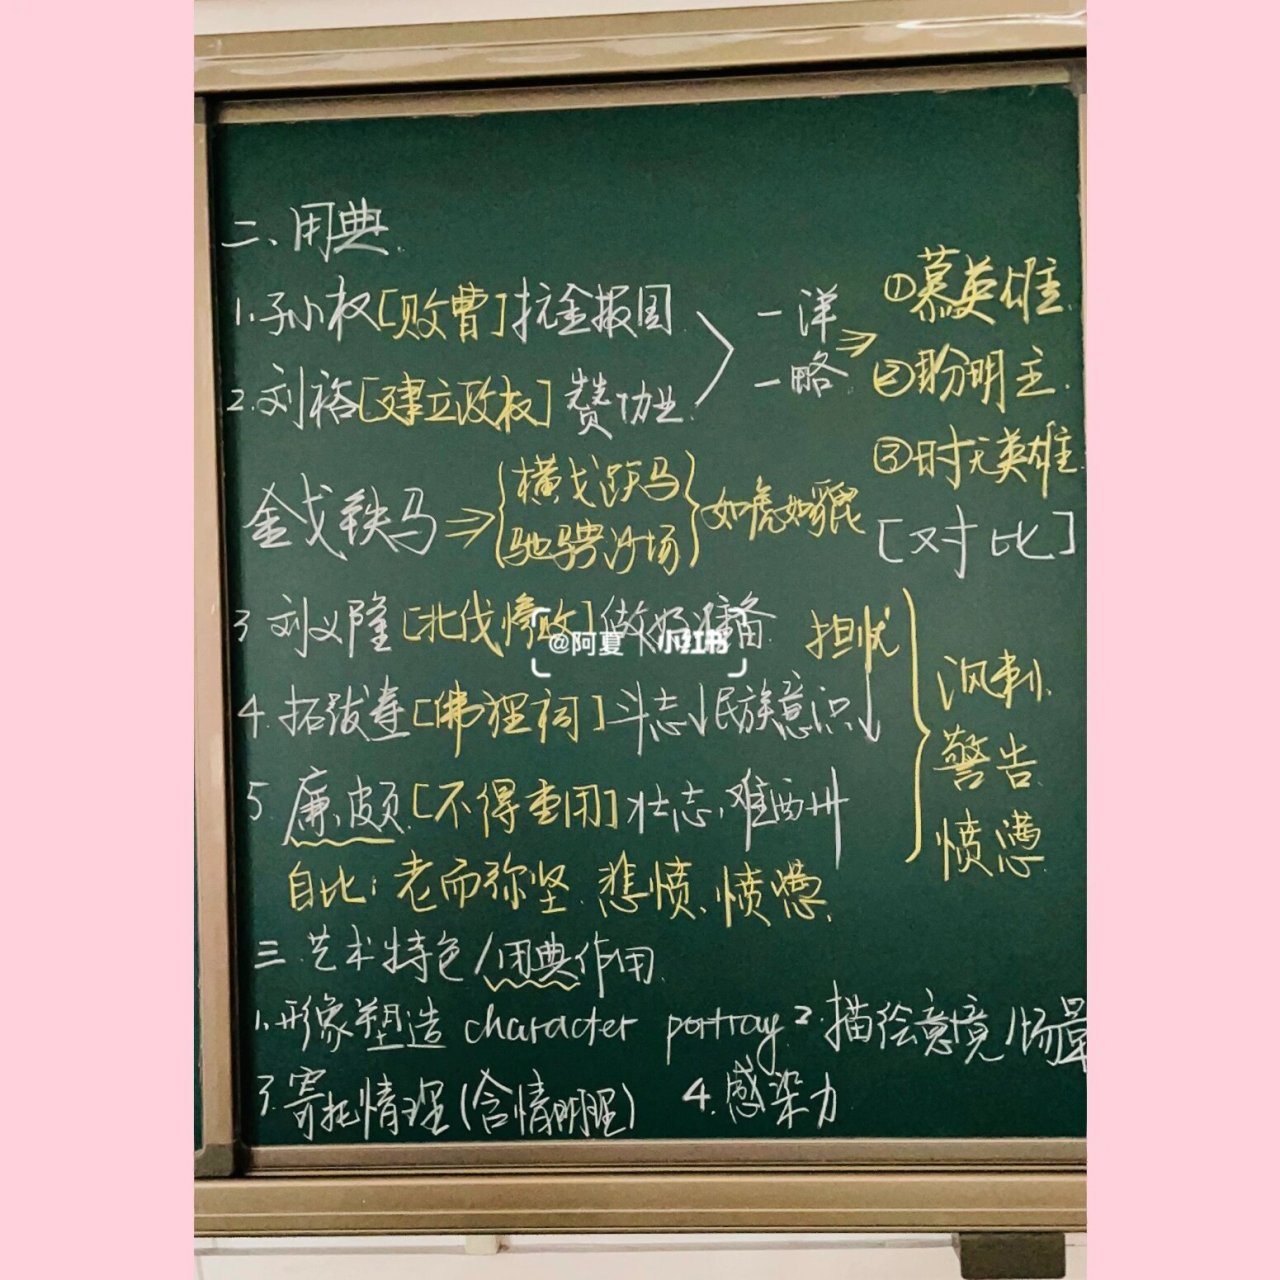 二、用典
1.孙权[败曹]抗金报国
2.刘裕[建立政权]赞功业
一详
一略
①慕英雄
②盼明主
③时无英雄
[对比]
金戈铁马⇒{横戈跃马
驰骋沙场}如虎如貔
3 刘义隆[北伐惨败]做好准备 担忧
@阿夏 小红书
4.拓跋焘[佛狸祠]斗志↓民族意识↓
5 廉颇[不得重用]壮志难酬
讽刺、
警告
愤懑
自比:老而弥坚.悲愤、愤懑.
三.艺术特色/用典作用
1.形象塑造 character portray 2.描绘意境/场景
3.寄托情理(含情明理) 4.感染力